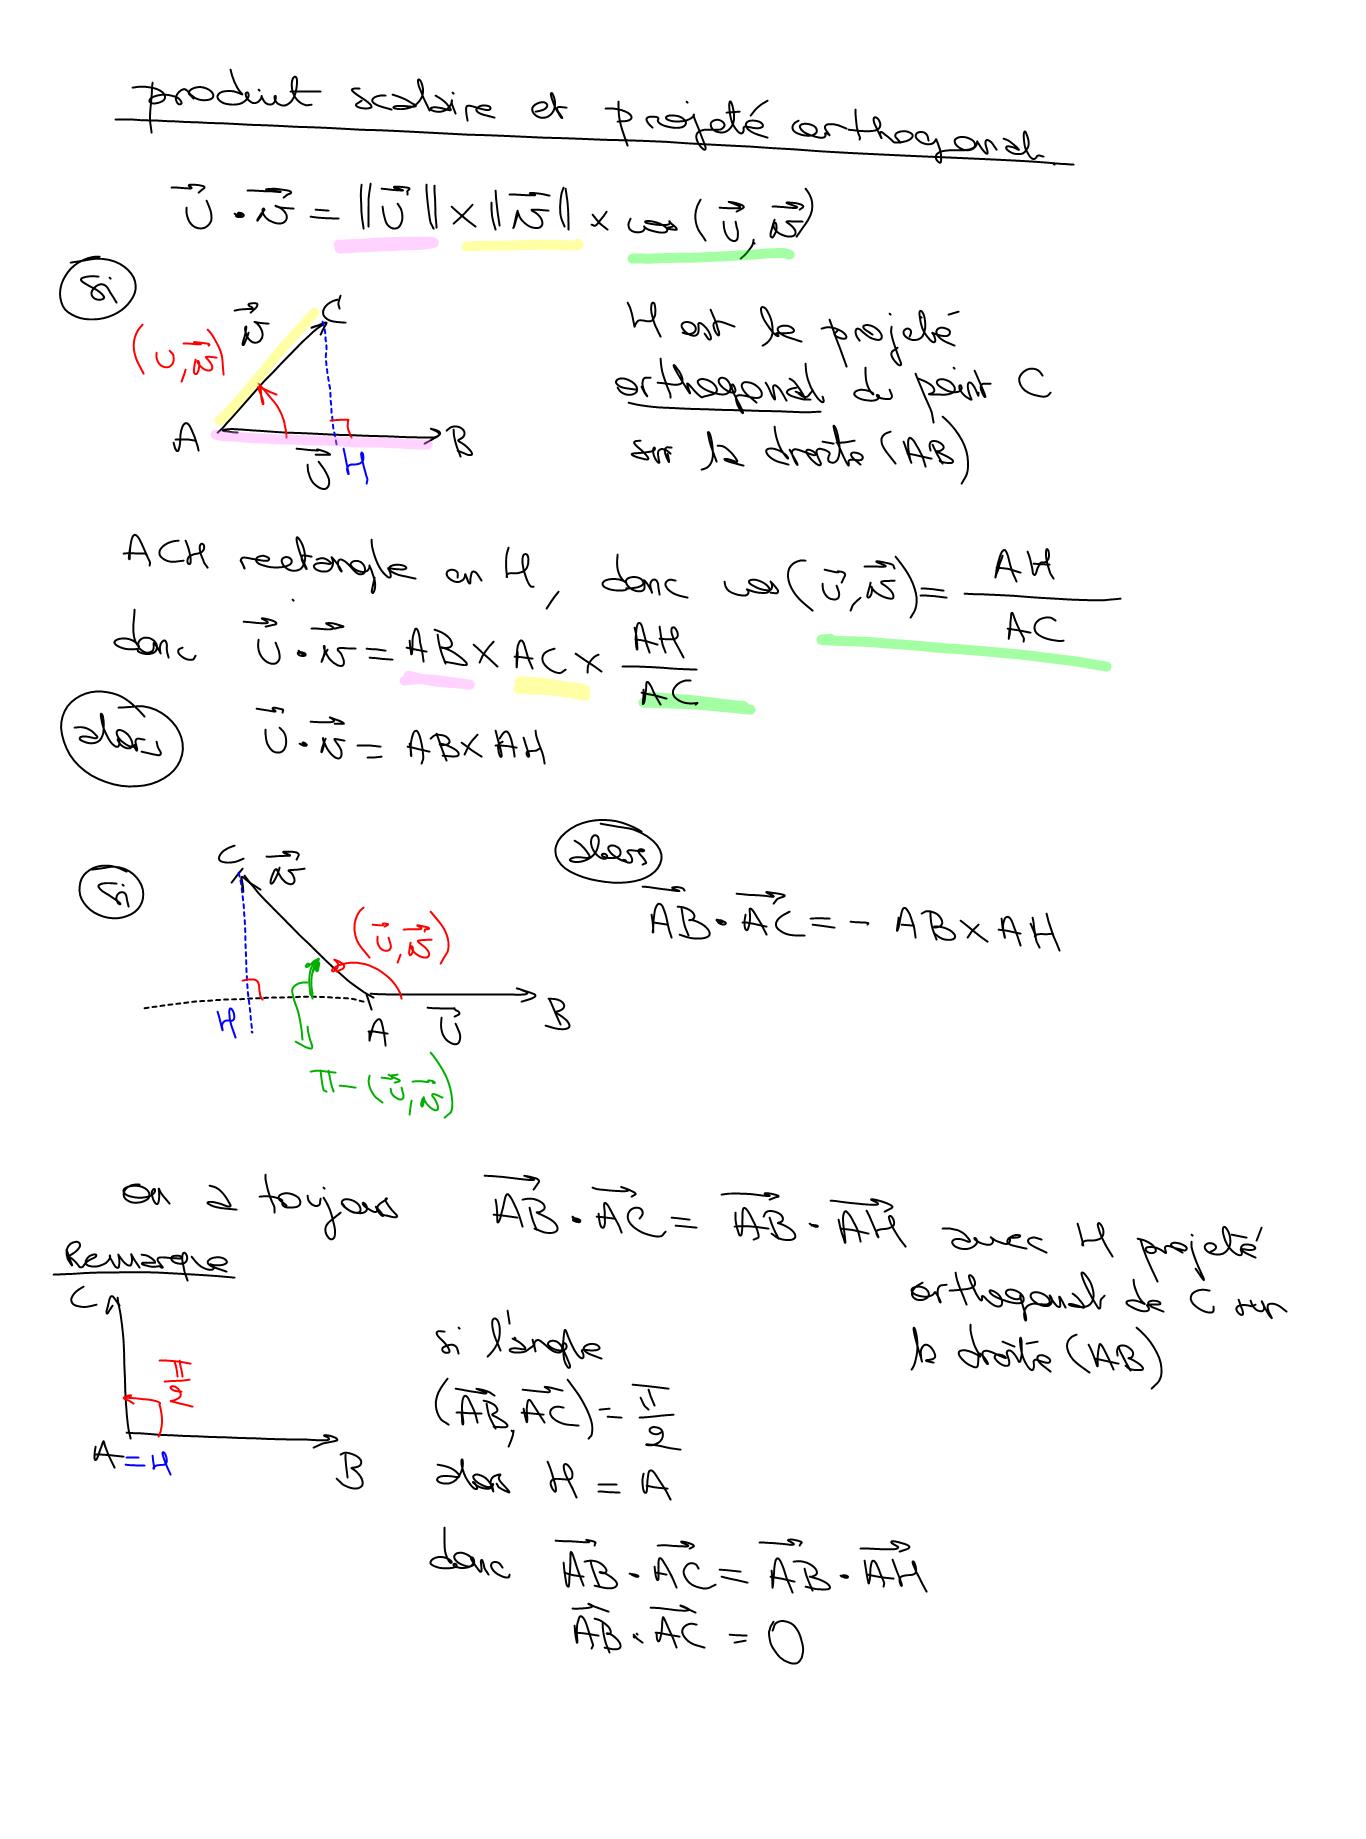 produit scalaire et projeté orthogonal
$\vec{U} \cdot \vec{v} = \|\vec{U}\| \times \|\vec{v}\| \times \cos(\vec{U}, \vec{v})$
Si
C
$\vec{v}$
$(U, \vec{v})$
A
B
$\vec{U}$
H
H est le projeté
orthogonal du point C
sur la droite (AB)
ACH rectangle en H, donc $\cos(\vec{U}, \vec{v}) = \frac{AH}{AC}$
donc $\vec{U} \cdot \vec{v} = AB \times AC \times \frac{AH}{AC}$
alors $\vec{U} \cdot \vec{v} = AB \times AH$
Si
C $\vec{v}$
$(\vec{U}, \vec{v})$
H
A
$\vec{U}$
B
$\pi - (\vec{U}, \vec{v})$
alors
$\vec{AB} \cdot \vec{AC} = - AB \times AH$
on a toujours $\vec{AB} \cdot \vec{AC} = \vec{AB} \cdot \vec{AH}$ avec H projeté
orthogonal de C sur
la droite (AB)
Remarque
C
$\frac{\pi}{2}$
A = H
B
si l'angle
$(\vec{AB}, \vec{AC}) = \frac{\pi}{2}$
alors H = A
donc $\vec{AB} \cdot \vec{AC} = \vec{AB} \cdot \vec{AH}$
$\vec{AB} \cdot \vec{AC} = 0$